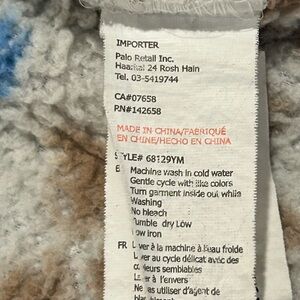 IMPORTER
Palo Retail Inc.
Haarkal 24 Rosh Hain
Tel. 03-5419744
CA#07658
RN#142658
MADE IN CHINA/FABRIQUÉ
EN CHINE/HECHO EN CHINA
STYLE# 68129YM
E Machine wash in cold water
Gentle cycle with like colors
Turn garment inside out while
Washing
No bleach
Tumble dry Low
Low iron
FR Laver à la machine à l'eau froide
Laver au cycle délicat avec des
couleurs semblables
Laver à l'envers
Ne pas utiliser d'agent de